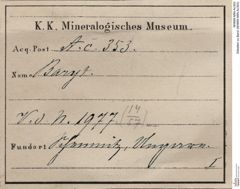 K. K. Mineralogisches Museum.
Acq. Post. A. c. 353.
Name Baryt.
V. d. N. 1977. (14/57)
Fundort Schemnitz, Ungarn.
I